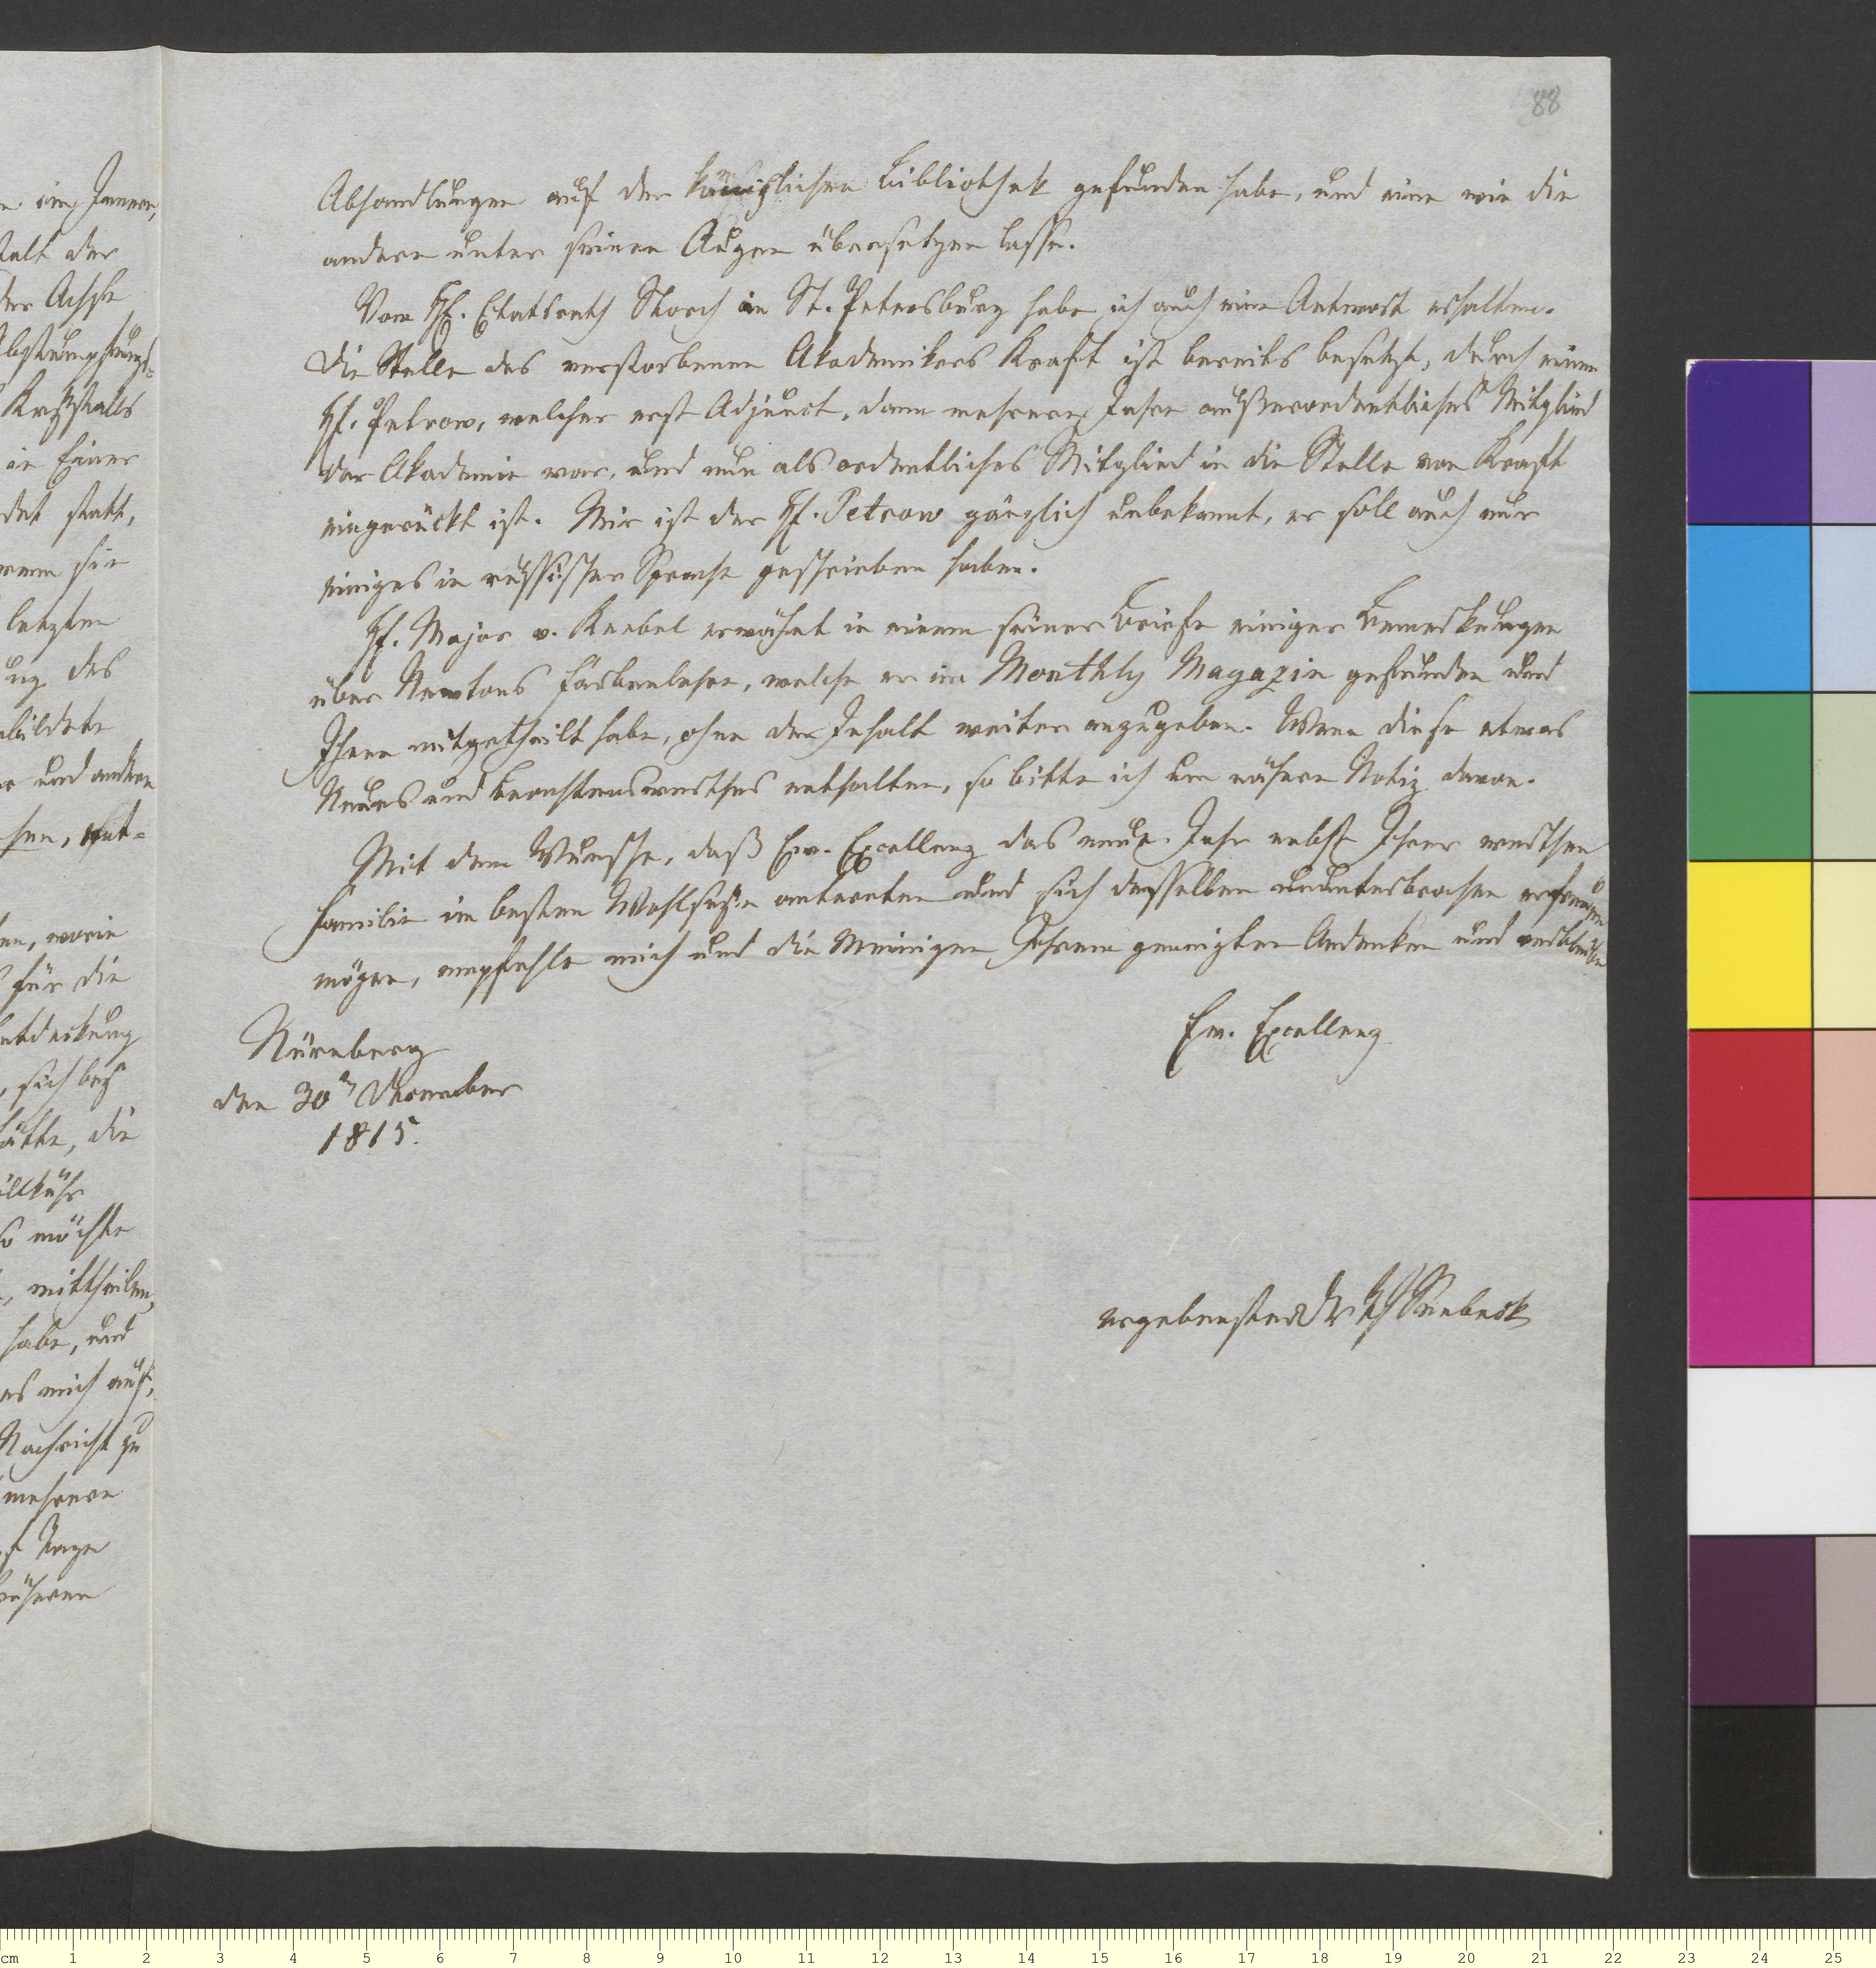 88
Abhandlungen auf der königlichen Bibliothek gefunden habe, und eine wie die
andere unter seinen Augen übersetzen lasse.
Vom H. Etatsrath Storch in St. Petersburg habe ich auch eine Antwort erhalten.
Die Stelle des verstorbenen Akademikers Kraft ist bereits besetzt, durch einen
H. Petrow, welcher erst Adjunct, dann mehrere Jahre außerordentliches Mitglied
der Akademie war, und nun als ordentliches Mitglied in die Stelle von Kraft
eingerückt ist. Mir ist der H. Petrow gänzlich unbekannt, er soll auch nur
einiges in russischer Sprache geschrieben haben.
H. Major v. Knebel erwähnt in einem seiner Briefe einiger Bemerkungen
über Newtons Farbenlehre, welche er im Monthly Magazin gefunden und
Ihnen mitgetheilt habe, ohne den Inhalt weiter anzugeben. Wenn diese etwas
Neues und Beachtenswerthes enthalten, so bitte ich um nähere Notiz davon.
Mit dem Wunsche, daß Ew. Excellenz das neue Jahr nebst Ihrer werthen
Familie im besten Wohlseyn antreten und sich desselben ununterbrochen erfreuen
mögen, empfehle mich und die Meinigen Ihrem geneigten Andenken und verbleibe
Ew. Excellenz
Nürnberg
den 30n December
1815.
ergebenster Dr Seebeck
im Innern,
der
der Achse
Krystalls
in Einer
statt,
wenn sie
letzten
des
und andern
worin
für die
sich bey
hätte, die
so möchte
mittheilen,
habe, und
es mich auf,
Nachricht zu
mehrere
Tage
cm 1 2 3 4 5 6 7 8 9 10 11 12 13 14 15 16 17 18 19 20 21 22 23 24 25